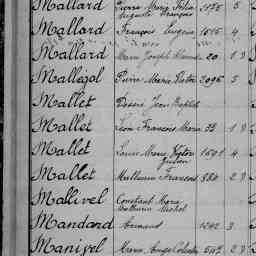 Mallard Pierre Marie Félix 1178 5
Auguste François
Mallard François Eugène 1015 4
Mallard Marie Joseph 20 1 3
Mallégol Pierre Marie Victor 2096 5
Mallet Désiré Jean Baptiste
Mallet Léon François Marie 33 1 3
Mallet Louis Marie Victor 1591 4
Mallet Mathurin François 884 2 3
Mallivel Constant Marie
Mathurin Michel
Mandard Armand 1242 3
Manivel Marie Ange 542 2 3